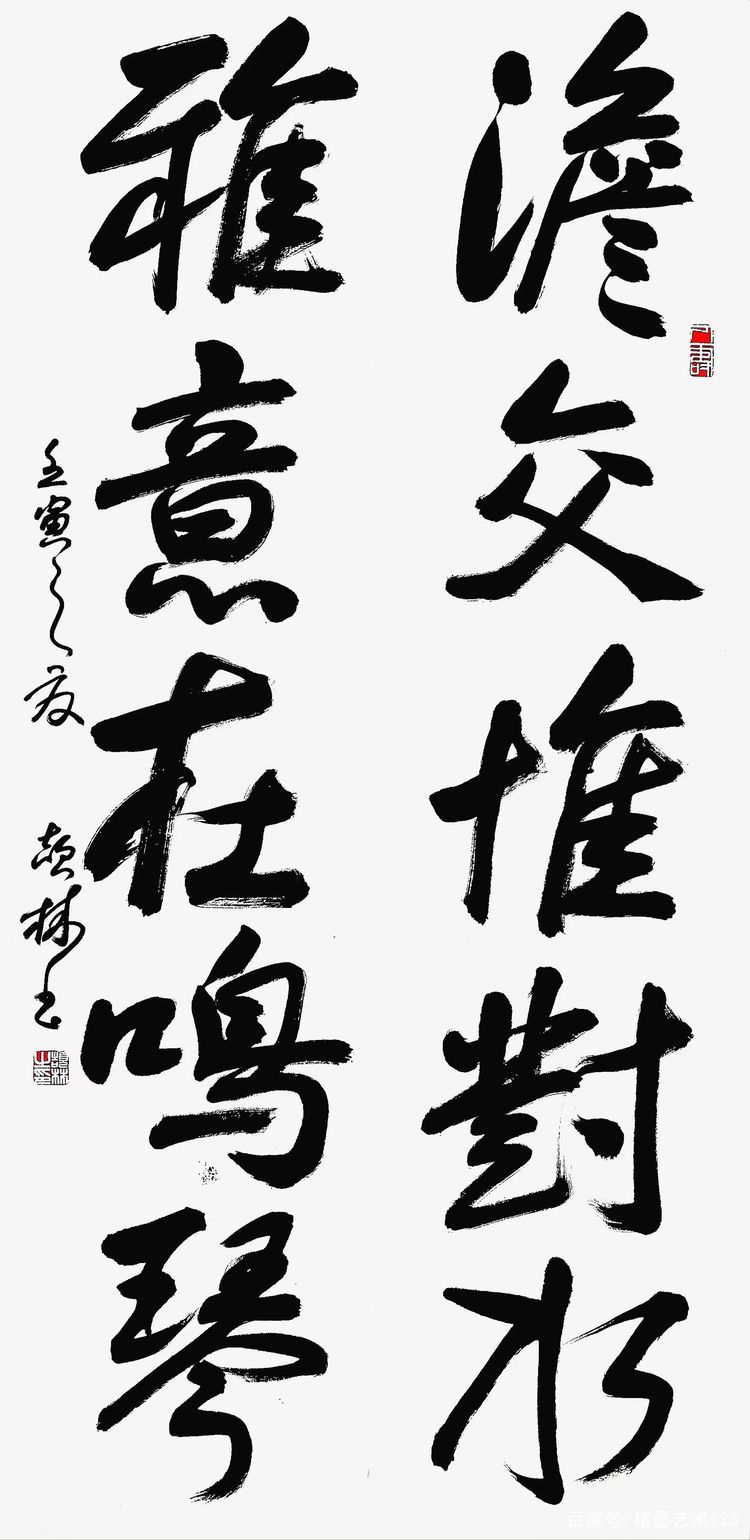 澹交惟對水
雅意在鳴琴
壬寅之夏
林书
百家号/楮墨艺术123